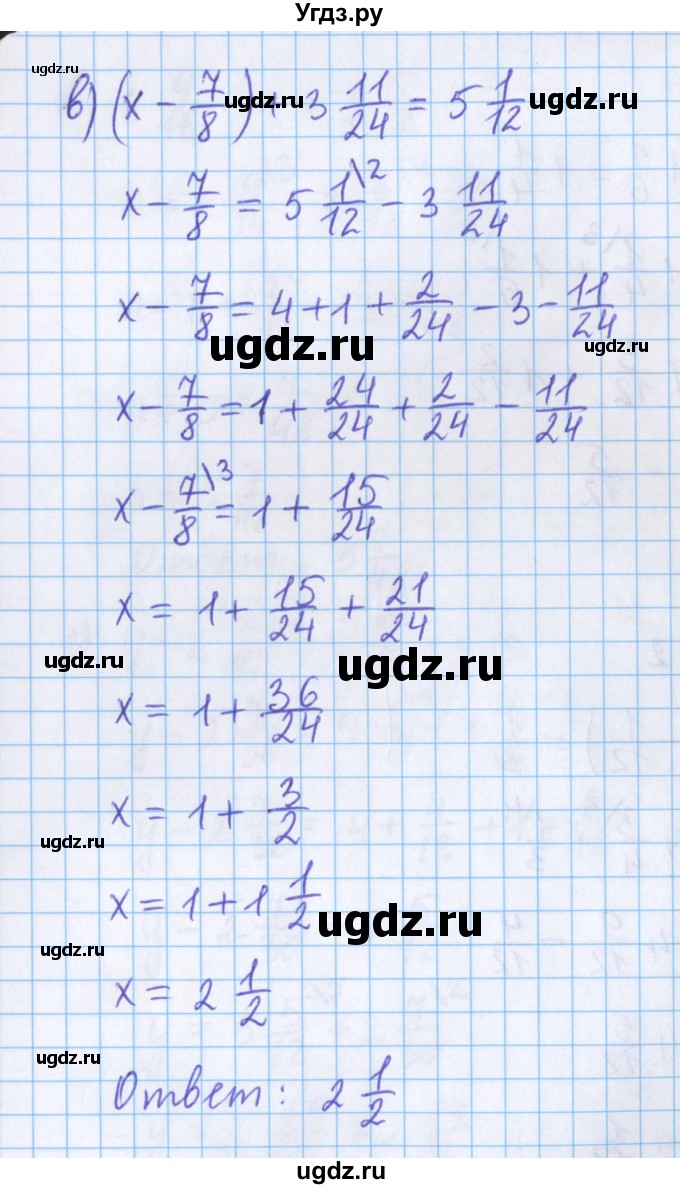 Угдз.ру
ugdz.ru
в) (x - 7/8) + 3 11/24 = 5 1/12
ugdz.ru ugdz.ru
x - 7/8 = 5 1\2/12 - 3 11/24
x - 7/8 = 4 + 1 + 2/24 - 3 - 11/24
ugdz.ru ugdz.ru
x - 7/8 = 1 + 24/24 + 2/24 - 11/24
x - 7\3/8 = 1 + 15/24
x = 1 + 15/24 + 21/24
ugdz.ru ugdz.ru
x = 1 + 36/24
x = 1 + 3/2
ugdz.ru
x = 1 + 1 1/2
ugdz.ru
ugdz.ru
x = 2 1/2
ugdz.ru
Ответ: 2 1/2
ugdz.ru